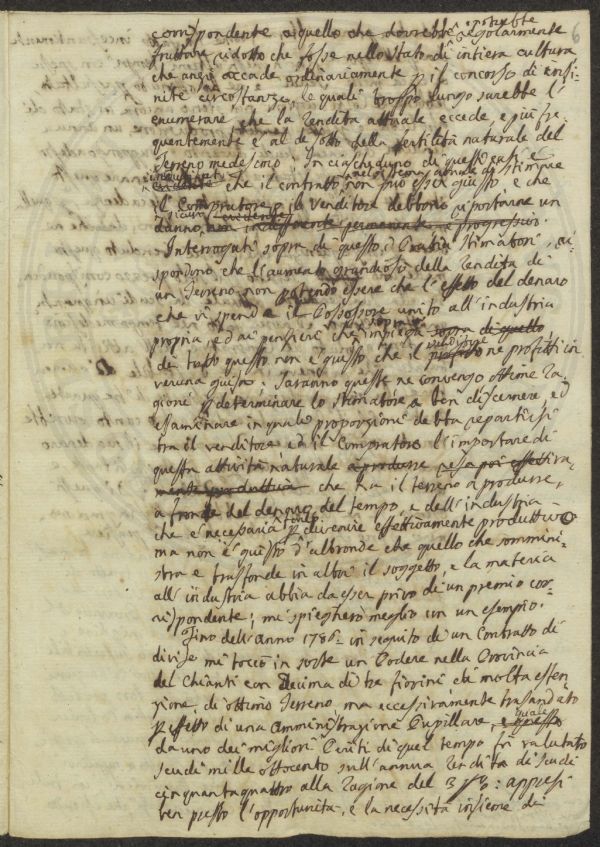 e potrebbe
corrispondente a quello che dovrebbe regolarmente
fruttare ridotto che fosse nello stato di intiera cultura
che anzi accade ordinariamente p il concorso di infi-
nite circostanze, le quali troppo lungo sarebbe l'
enumerare che la rendita attuale eccede, e più fre-
quentemente è al di sotto della fertilità naturale del
Terreno medesimo: In ciascheduno di questi casi è
che il contratto non può esser giusto, e che
il Compratore, o il venditore debbono riportarne un
danno, non indifferente permanente, e progressivo.
Interrogati sopra di questo i Pratici Stimatori, ri-
spondono che l'aumento grandioso della rendita di
un Terreno non potendo essere che l'effetto del denaro
che vi spende il Possessore unito all'industria
propria, ed ai pensieri che impiega sopra di quello
di tutto questo non è giusto che il venditore ne profitti in
veruna guisa: Saranno queste ne convengo ottime ra-
gioni p determinare lo stimatore a ben discernere, ed
esaminare in quale proporzione debba repartirsi
tra il venditore ed il Compratore l'importare di
questa attività naturale a produrre
che ha il terreno a produrre,
a fronte del denaro, del tempo, e dell'industria
che è necessaria p divenire effettivamente produttivo
ma non è giusto d'altronde che quello che sommini-
stra e trasfonde in altri il soggetto, e la materia
all'industria abbia da esser privo di un premio cor-
rispondente; mi spiegherò meglio con un esempio.
Fino dell'anno 1786. in seguito di un Contratto di
divise mi toccò in sorte un Podere nella Provincia
del Chianti con Decima di tre fiorini di molta esten-
zione, di ottimo Terreno, ma eccessivamente trasandato
p effetto di una Amministrazione Pupillare, e questo
da uno dei migliori Periti di quel tempo fu valutato
scudi mille ottocento sull'annua rendita di scudi
cinquantaquattro alla ragione del 3 p%: appresi
ben presto l'opportunità, e la necessità insieme di